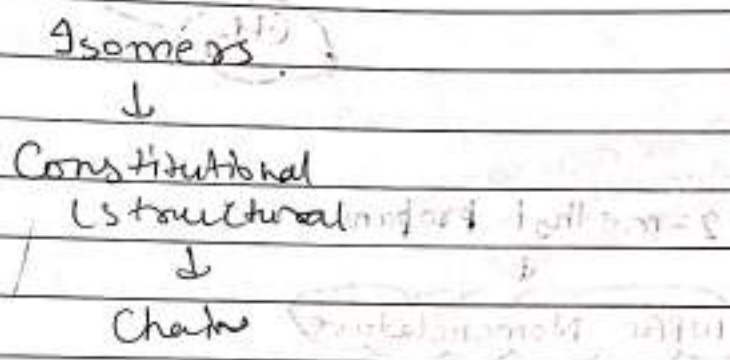 Isomers
↓
Constitutional
(structural
↓
Chain